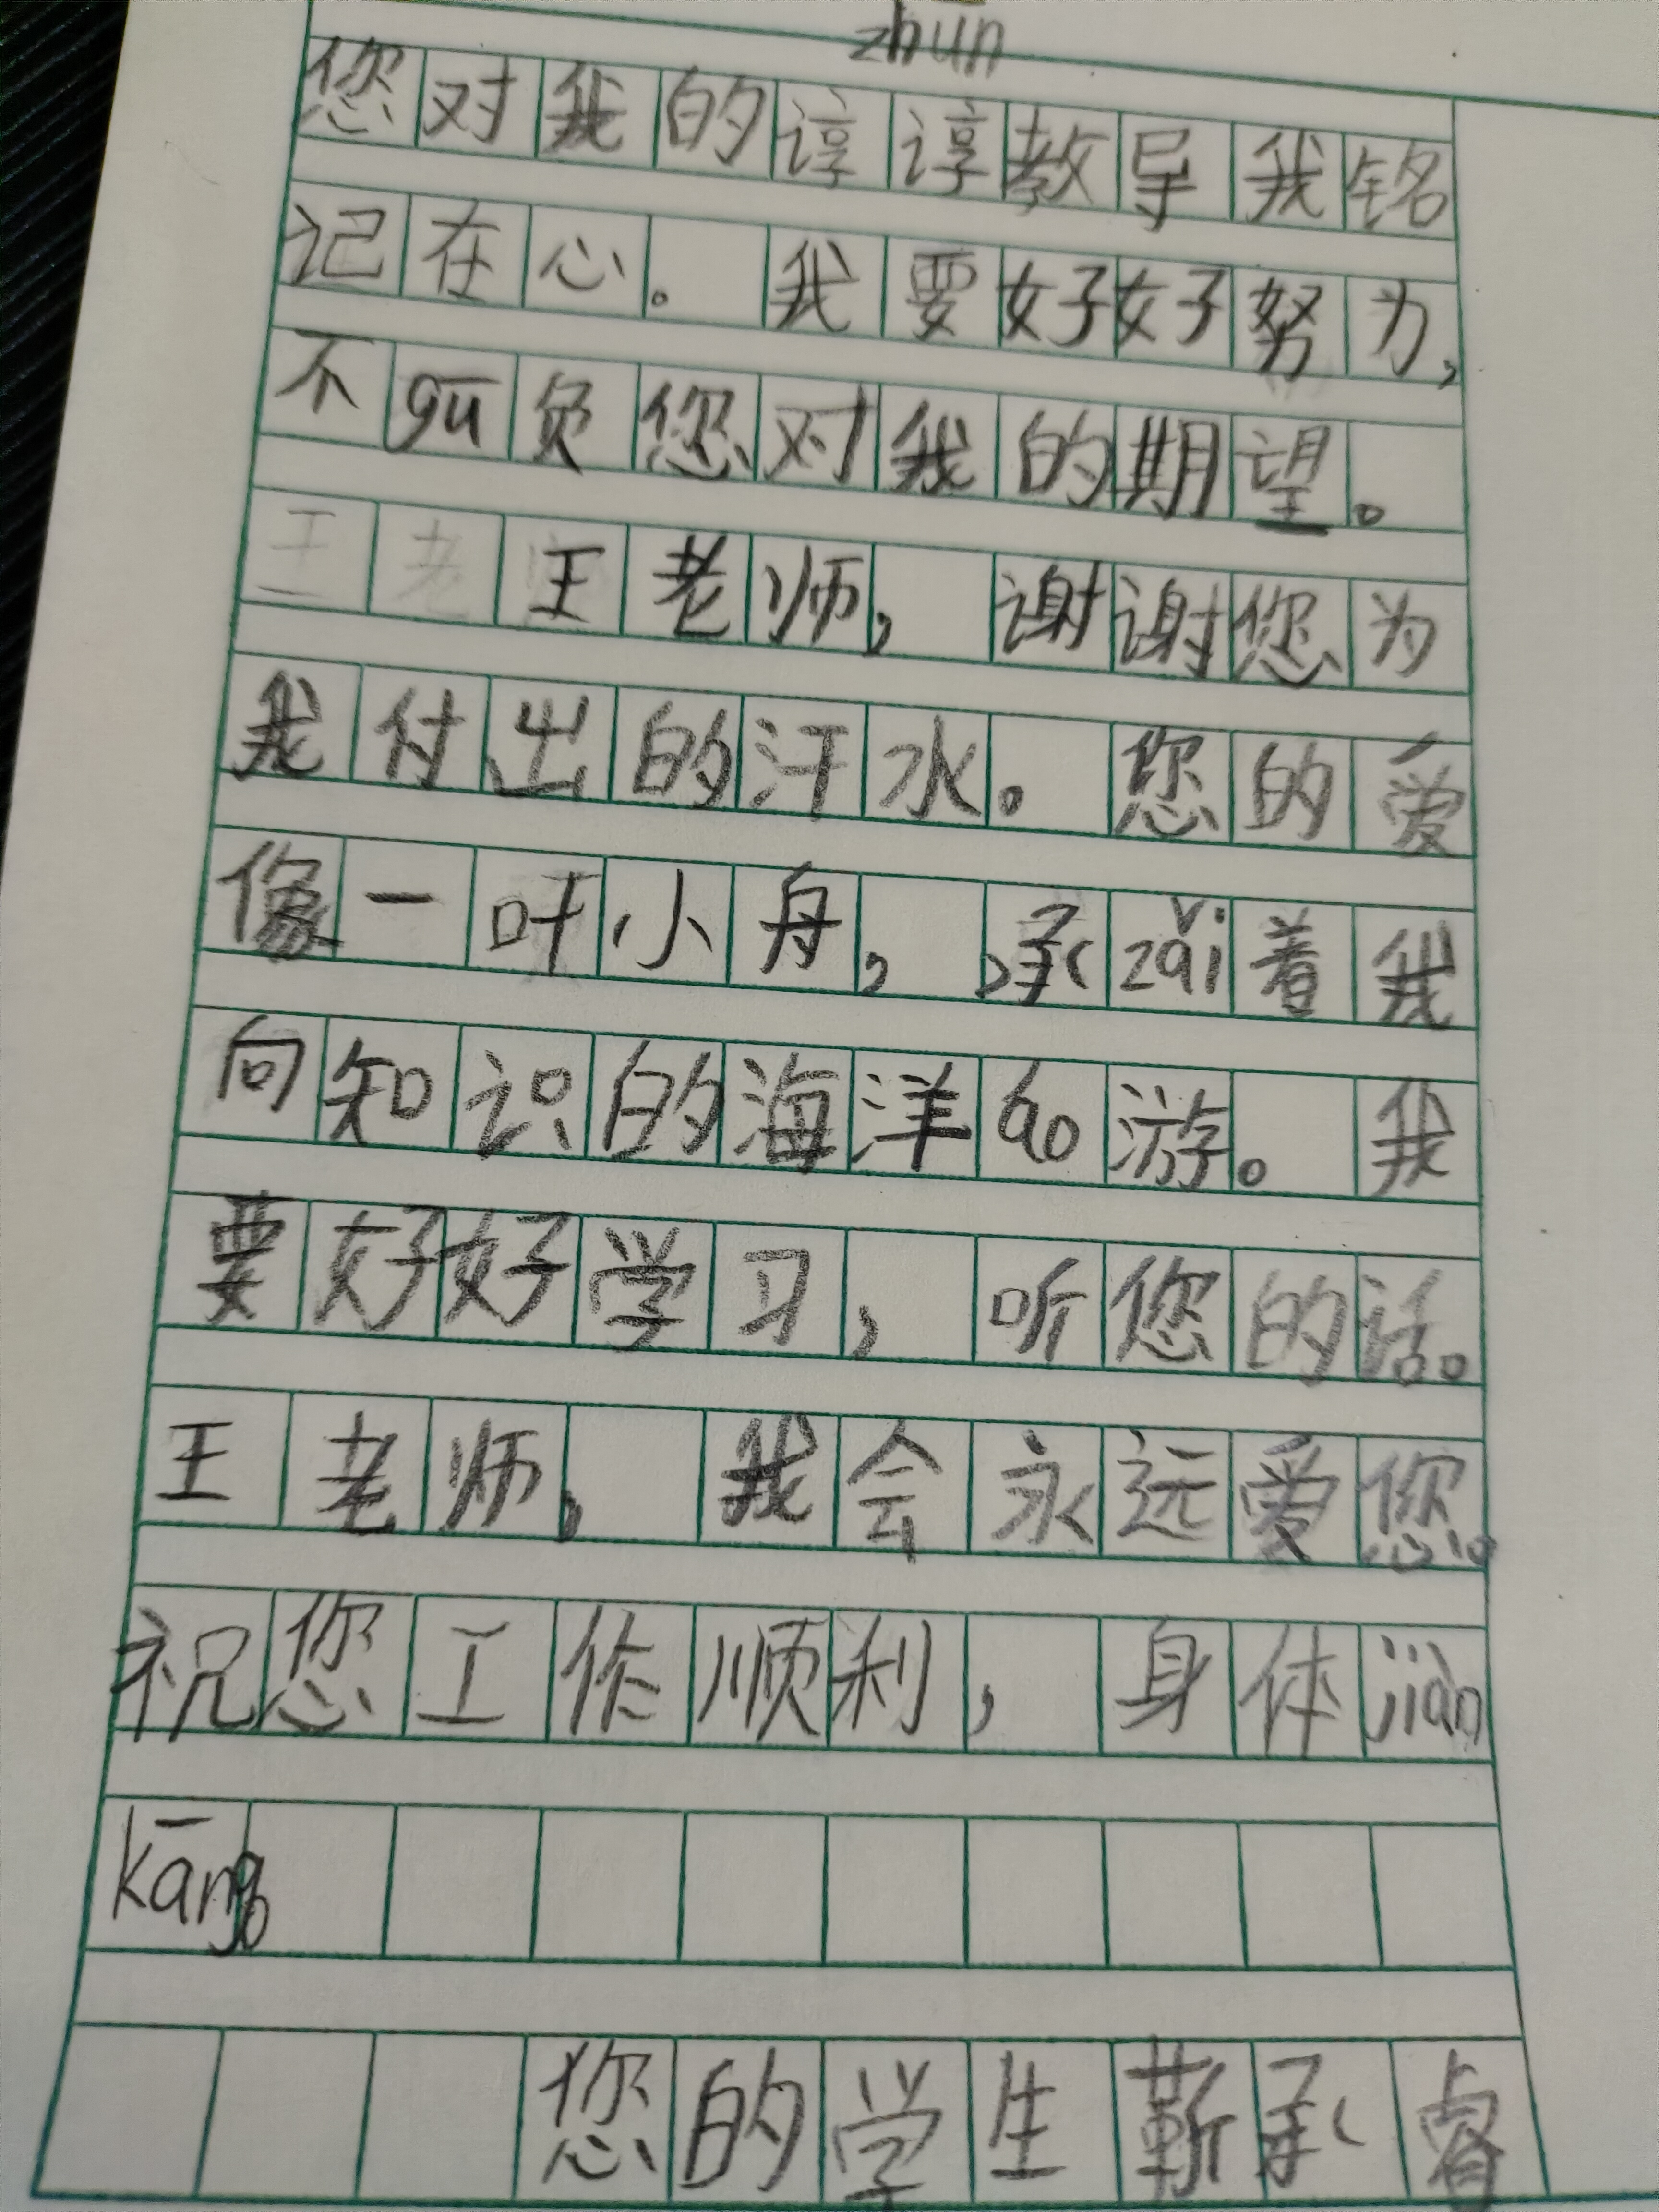 zhūn
您对我的谆谆教导我铭
记在心。我要好好努力,
不gū负您对我的期望。
王老王老师,谢谢您为
我付出的汗水。您的爱
像一叶小舟,承zǎi着我
向知识的海洋áo游。我
要好好学习,听您的话。
王老师,我会永远爱您。
祝您工作顺利,身体jiàn
kāng
您的学生靳承睿